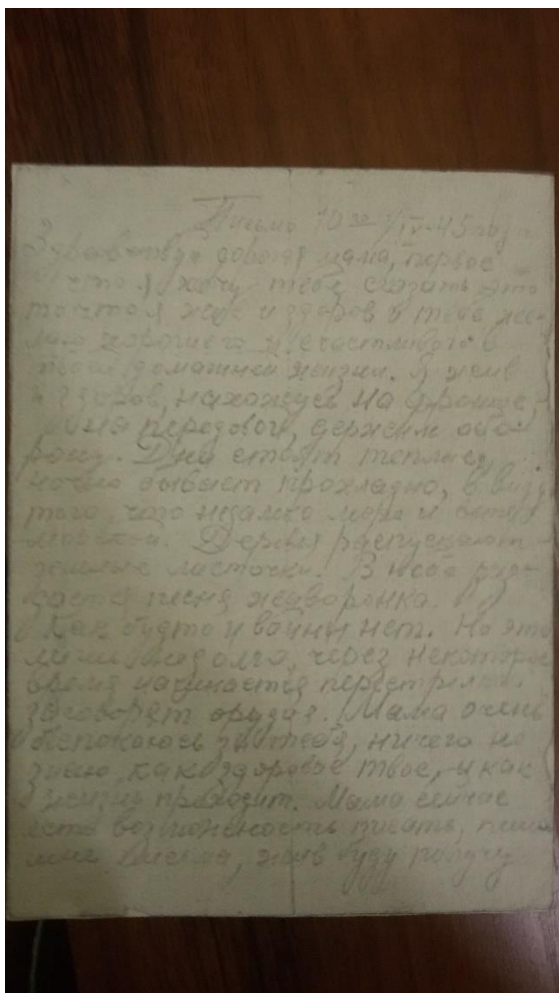 Письмо 10го/IV-45 года
Здравствуй дорогая мама, первое
что я хочу тебе сказать это
то что я жив и здоров и тебе же-
лаю хорошего и счастливого в
твоей домашней жизни. Я жив
и здоров, нахожусь на фронте,
на передовой, держим обо-
рону. Дни стоят теплые,
ночью бывает прохладно, в виду
того, что недалеко море и ветер
морской. Деревья распускают
листочки. В небе раз-
дается песня жаворонка.
Как будто и войны нет. Но это
лишь недолго, через некоторое
время начинается перестрелка
заговорят орудия. Мама очень
беспокоюсь за тебя, ничего не
знаю, как здоровье твое, и как
жизнь проходит. Мама сейчас
есть возможность писать, пиши
мне письма, жив буду получу